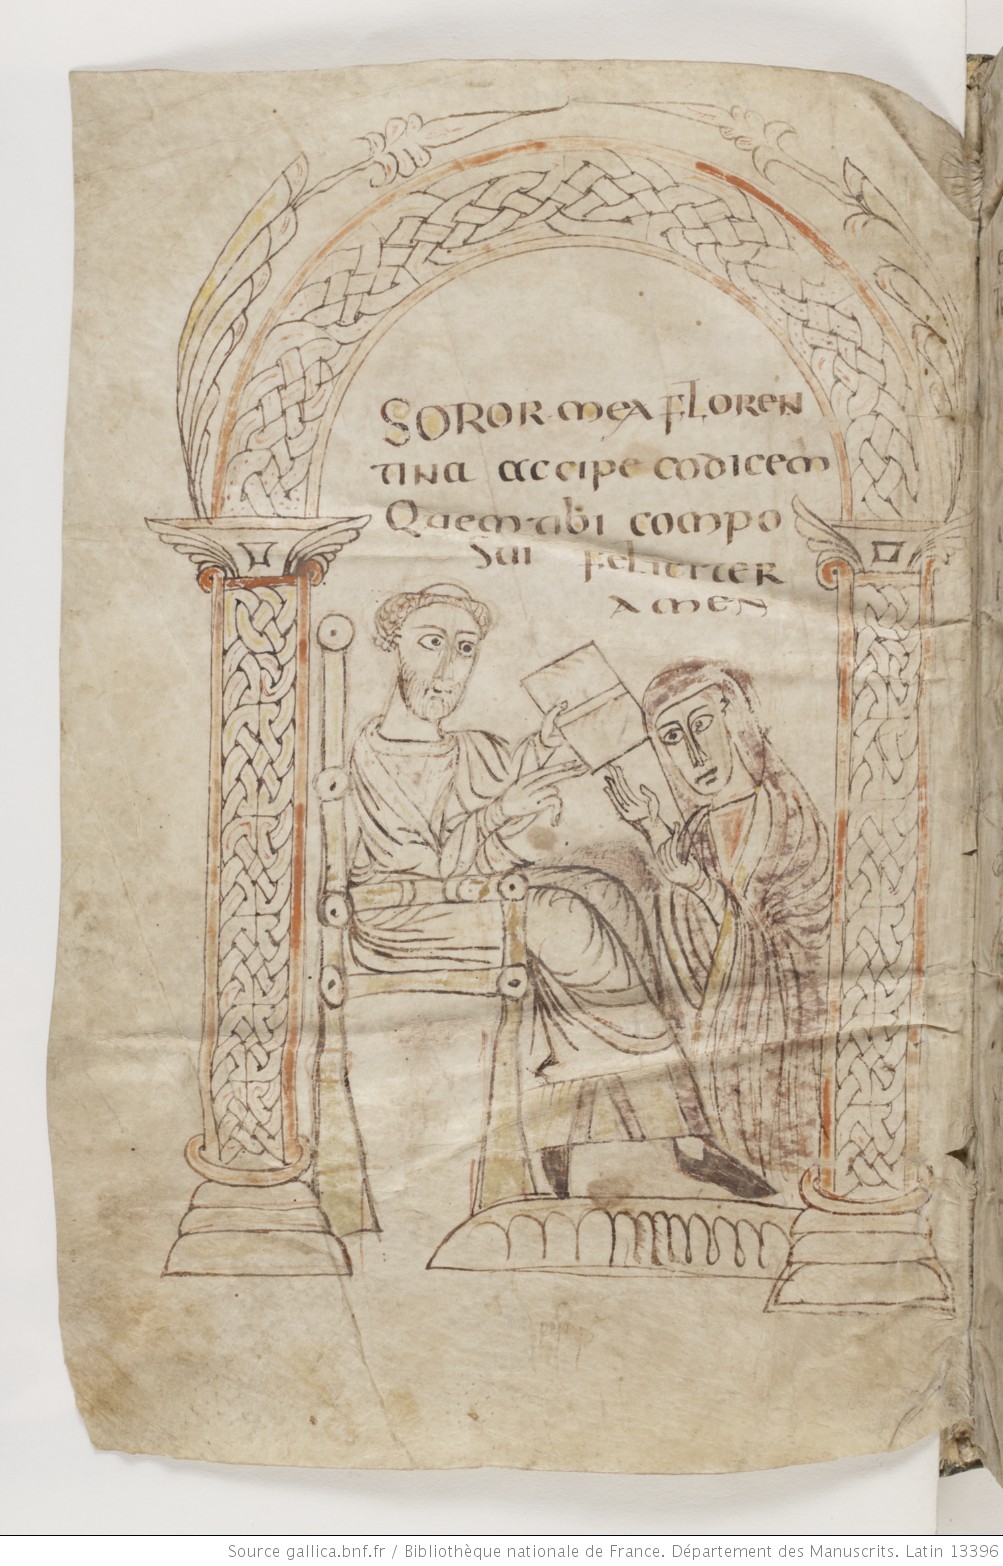 SOROR mea FLOREN
TINA accipe codicem
Quem tibi compo
Sui Feliciter
AMEN
Source gallica.bnf.fr / Bibliothèque nationale de France. Département des Manuscrits. Latin 13396